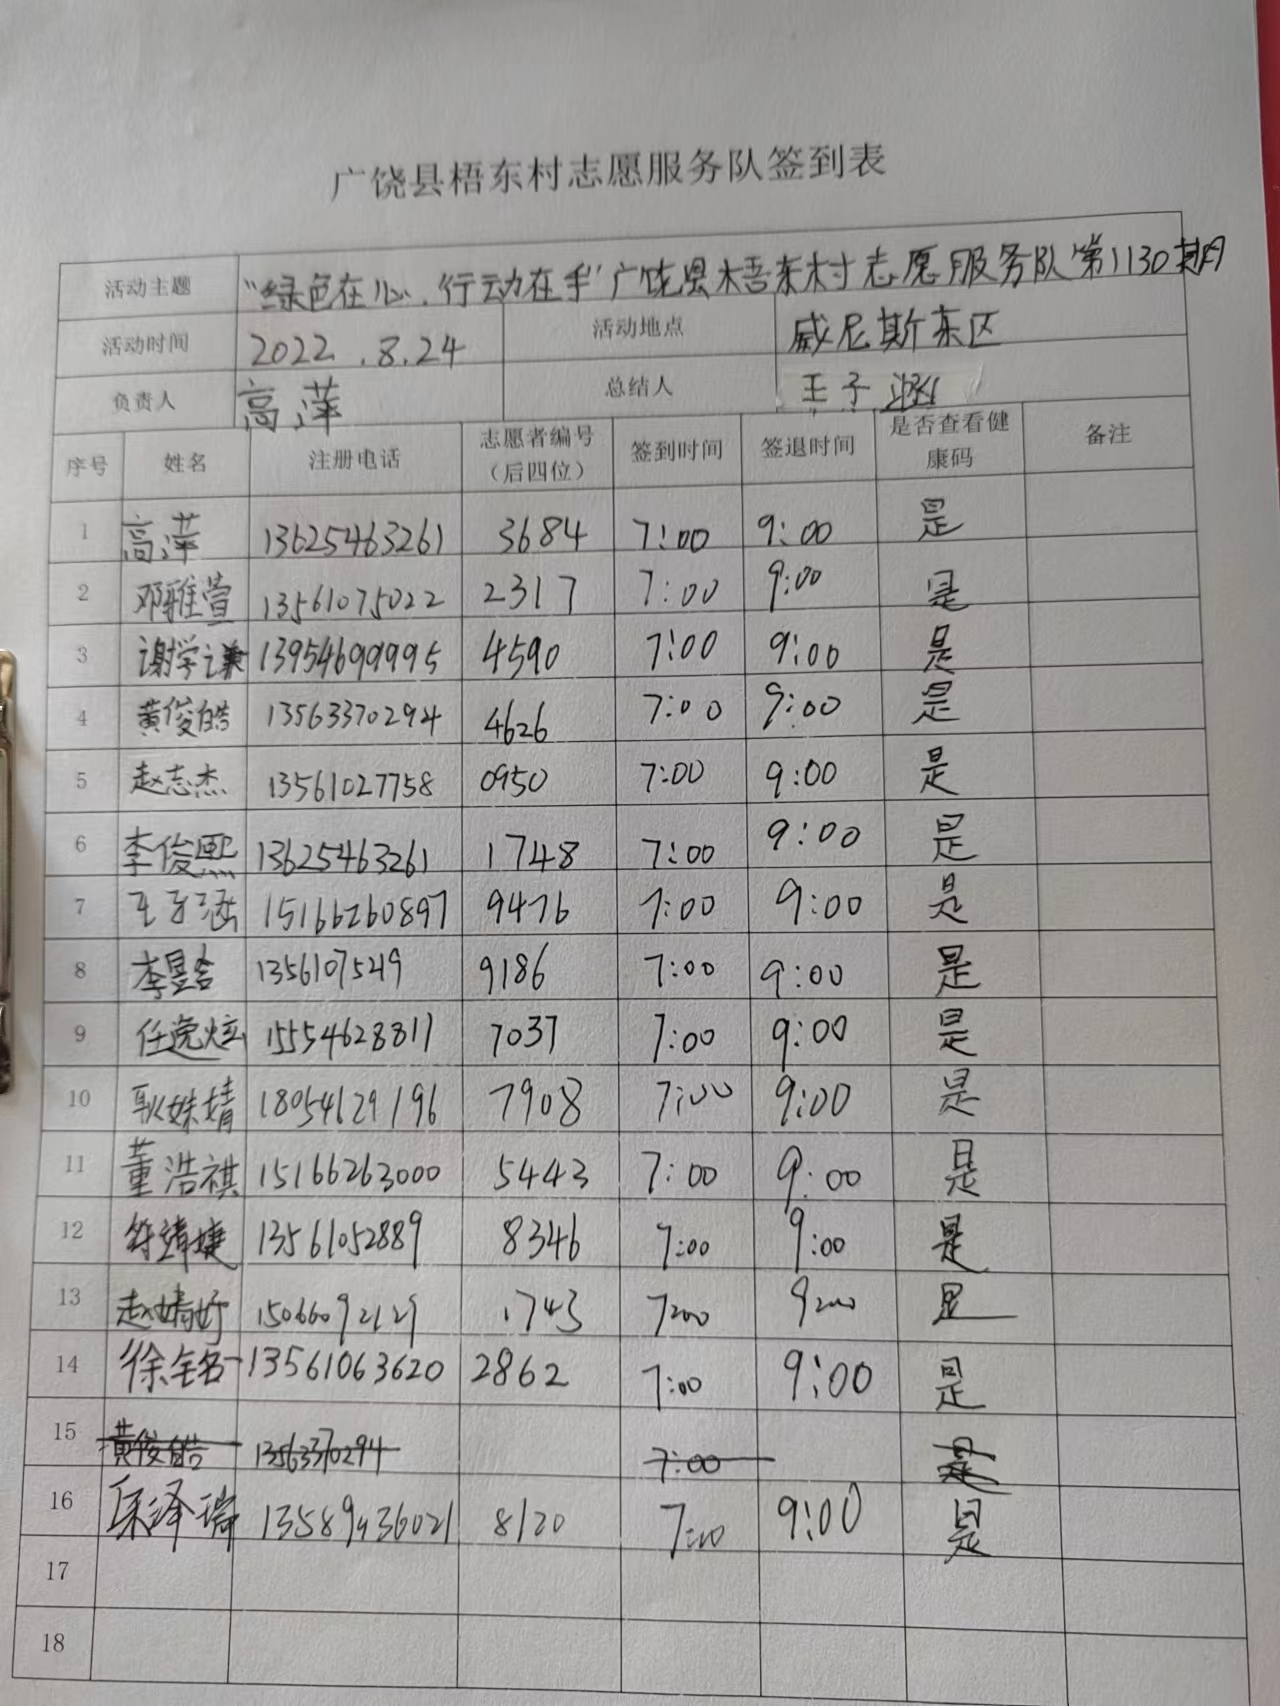 广饶县梧东村志愿服务队签到表
活动主题 “绿色在心，行动在手”广饶县梧东村志愿服务队第1130期
活动时间 2022.8.24 活动地点 威尼斯东区
负责人 高萍 总结人 王子涵
序号 姓名 注册电话 志愿者编号（后四位） 签到时间 签退时间 是否查看健康码 备注
1 高萍 13625463261 3684 7:00 9:00 是
2 邓雅萱 13561075022 2317 7:00 9:00 是
3 谢学谦 13954699995 4590 7:00 9:00 是
4 黄俊皓 13563370294 4626 7:00 9:00 是
5 赵志杰 13561027758 0950 7:00 9:00 是
6 李俊熙 13625463261 1748 7:00 9:00 是
7 王子涵 15166260897 9476 7:00 9:00 是
8 李昱含 1356107549 9186 7:00 9:00 是
9 任 15554628811 7037 7:00 9:00 是
10 耿姝婧 18054629196 7908 7:00 9:00 是
11 董浩祺 15166263000 5443 7:00 9:00 是
12 13561052889 8346 7:00 9:00 是
13 赵婧妤 15066092129 1743 7:00 9:00 是
14 徐铭一 13561063620 2862 7:00 9:00 是
15 黄俊皓 13563370294 7:00 是
16 泽瑞 13589436021 8120 7:00 9:00 是
17
18